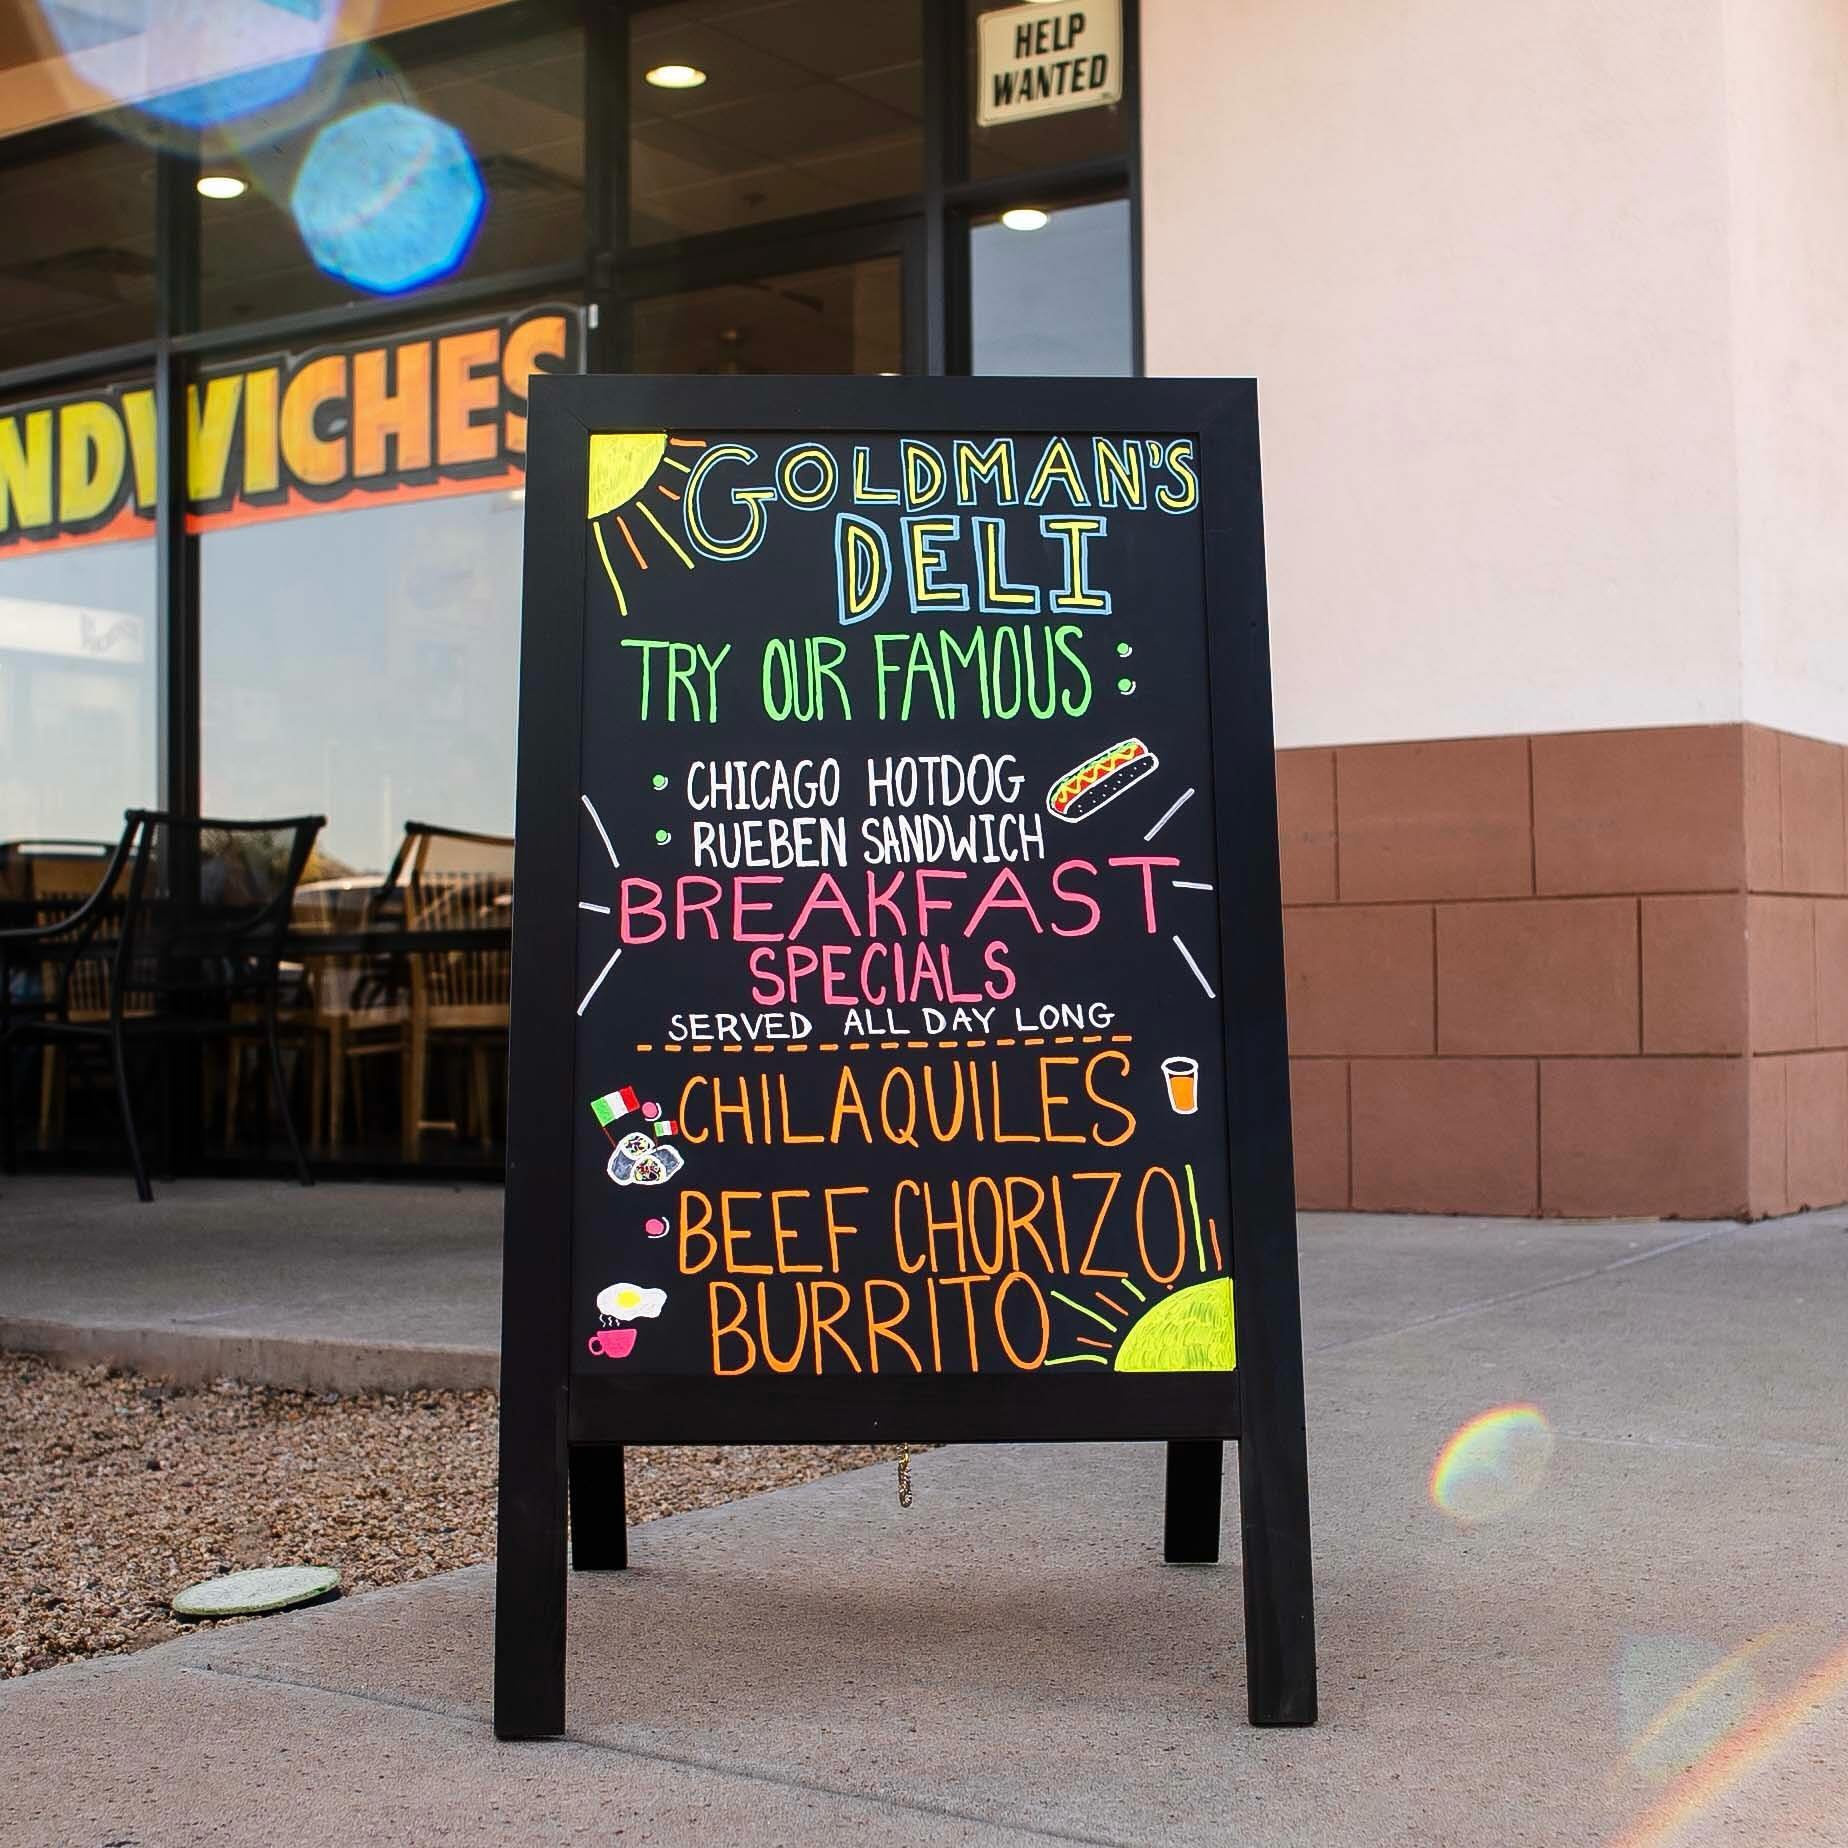 HELP
WANTED
NDWICHES
GOLDMAN'S
DELI
TRY OUR FAMOUS:
• CHICAGO HOTDOG
• RUEBEN SANDWICH
BREAKFAST
SPECIALS
SERVED ALL DAY LONG
• CHILAQUILES
• BEEF CHORIZO
BURRITO